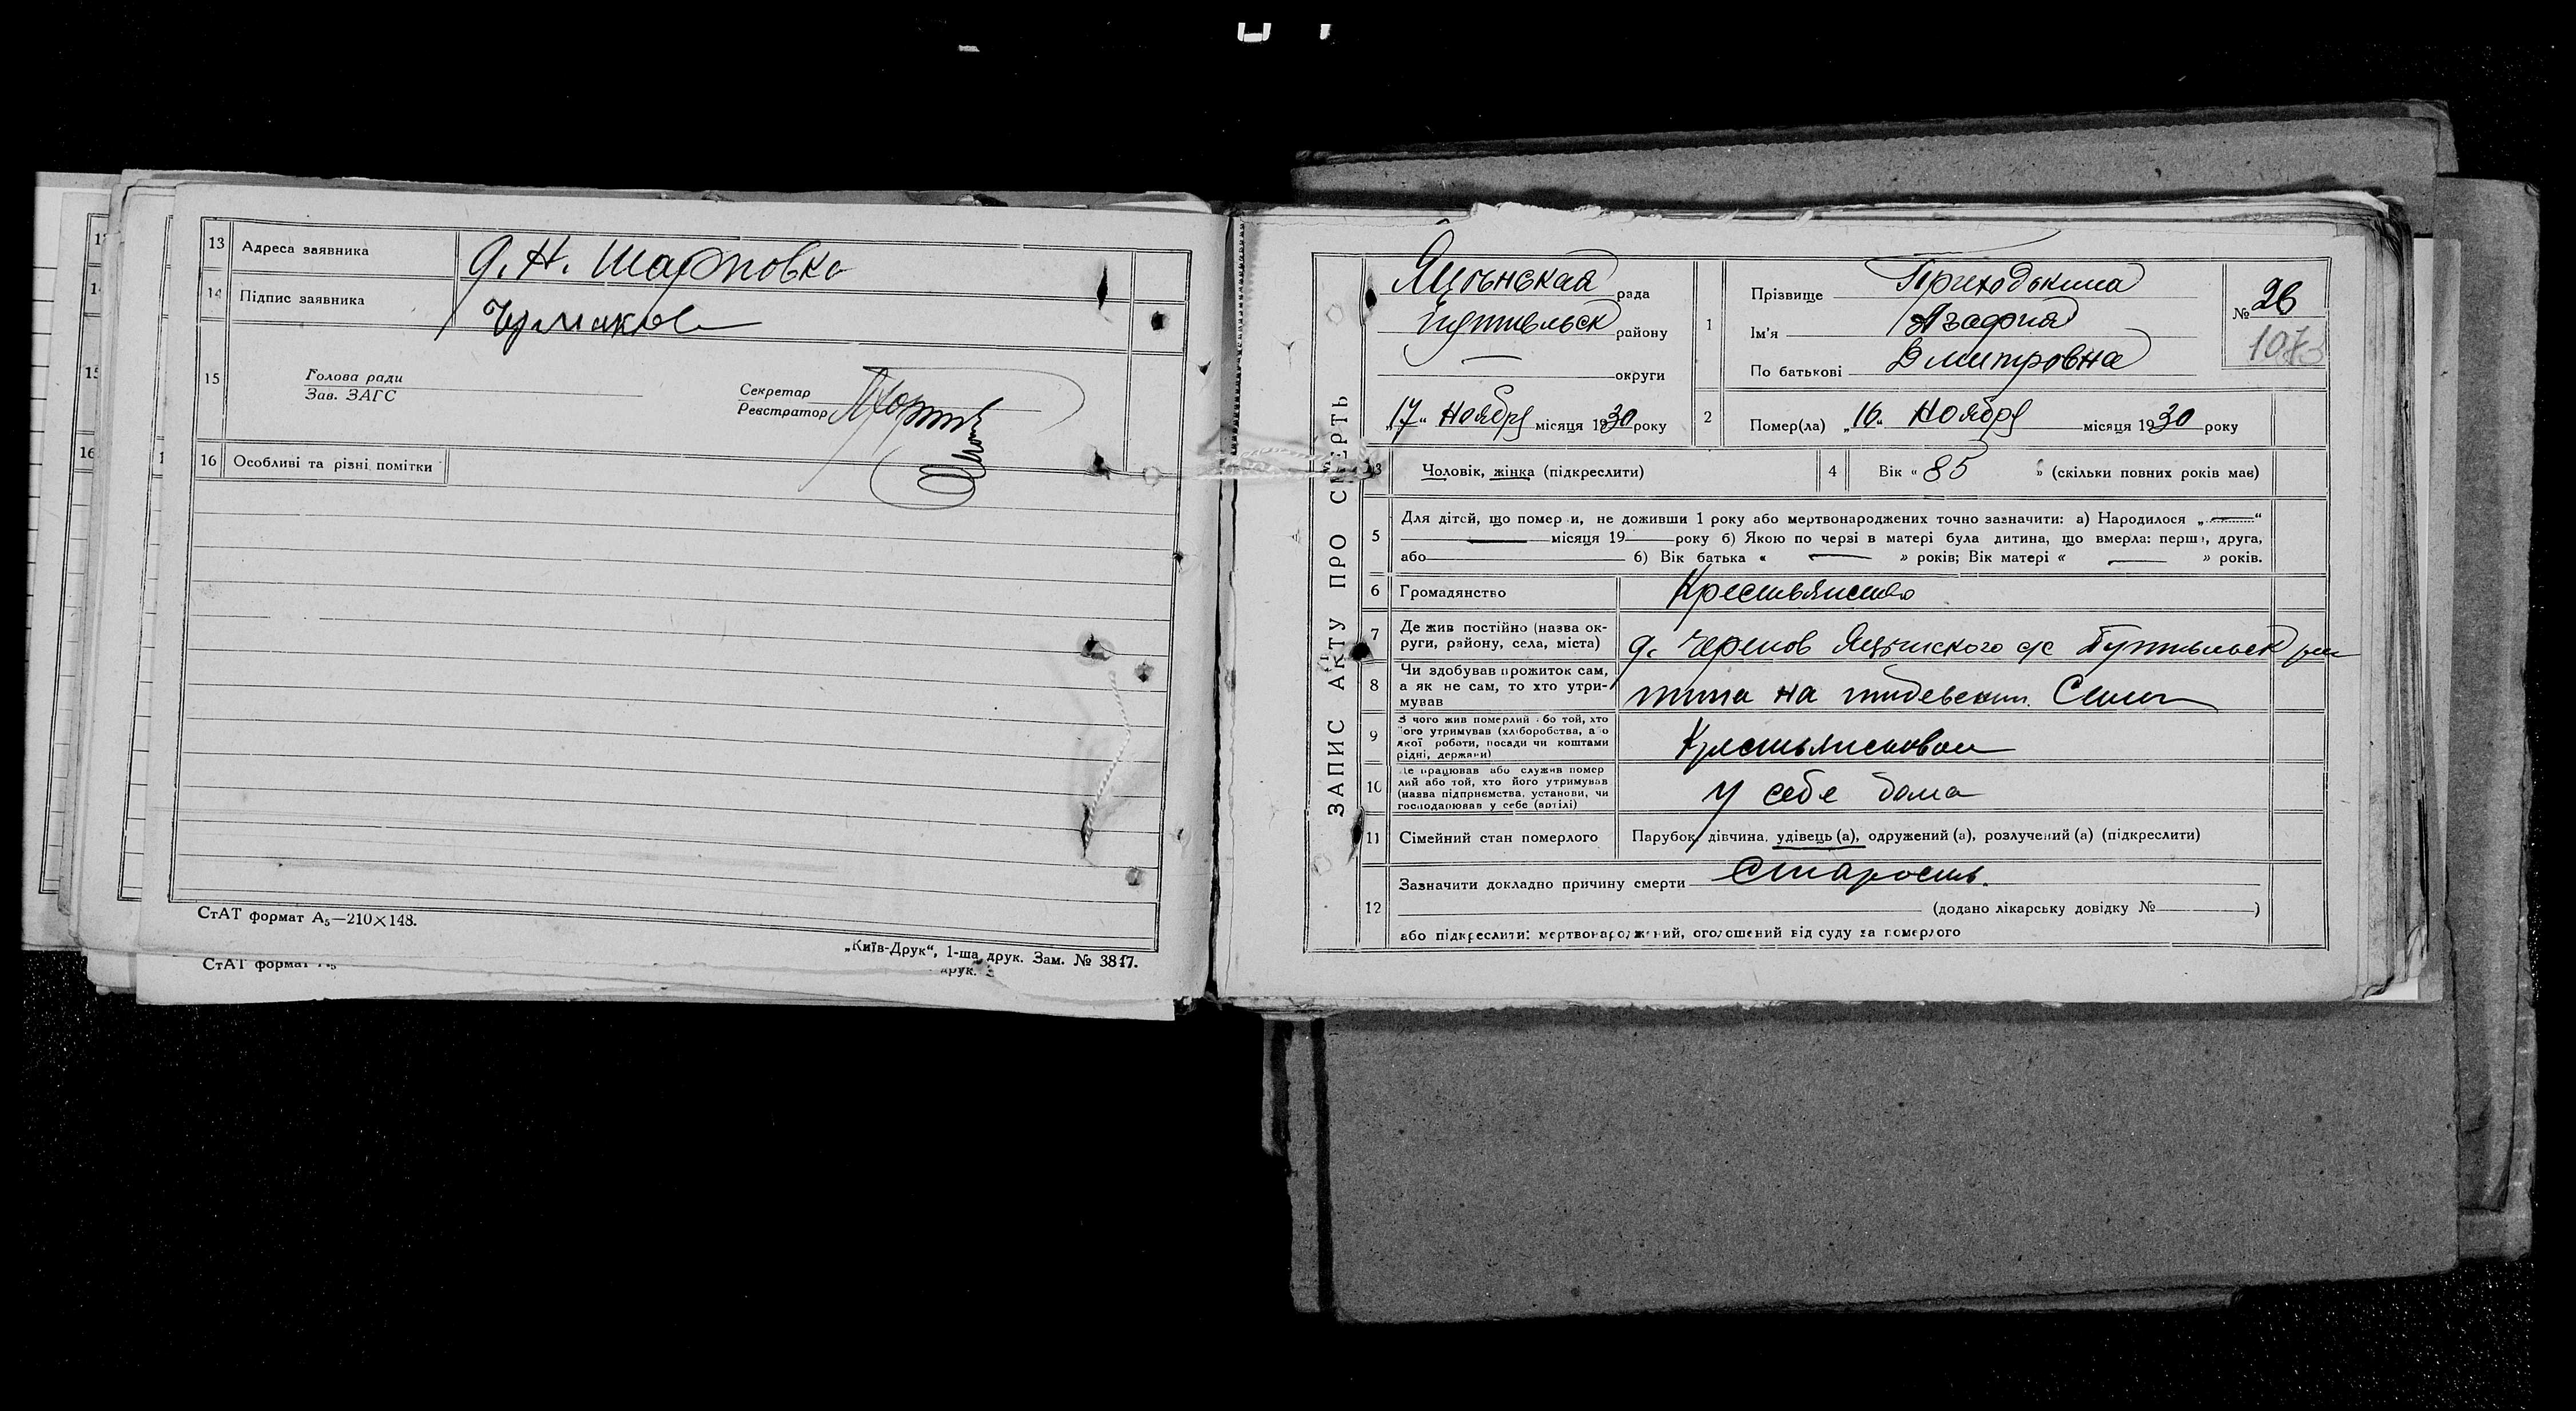 13 Адреса заявника д. Н. Шарповка
14 Підпис заявника
15 Голова ради
Зав. ЗАГС
Секретар
Реєстратор
16 Особливі та різні помітки
СтАТ формат А₅—210×148.
„Київ-Друк“, 1-ша друк. Зам. № 3817.
СтАТ формат А₅
друк. З
ЗАПИС АКТУ ПРО СМЕРТЬ
рада
Путивльск району
— округи
„17“ Ноября місяця 1930 року
1 Прізвище Приходькина
Ім'я Агафия
По батькові Дмитровна
№ 26
1073
2 Помер(ла) „16“ Ноября місяця 1930 року
3 Чоловік, жінка (підкреслити)
4 Вік « 85 » (скільки повних років має)
5 Для дітей, що померли, не доживши 1 року або мертвонароджених точно зазначити: а) Народилося „ — “
— місяця 19 року б) Якою по черзі в матері була дитина, що вмерла: перша, друга,
або б) Вік батька « — » років; Вік матері « — » років.
6 Громадянство Крестьянство
7 Де жив постійно (назва ок-
руги, району, села, міста) д. с/с Путивльск
8 Чи здобував прожиток сам,
а як не сам, то хто утри-
мував на
9 З чого жив померлий або той, хто
його утримував (хліборобства, або
якої роботи, посади чи коштами
рідні, держави)
10 Де працював або служив помер
лий або той, хто його утримував
(назва підприємства, установи, чи
господарював у себе (артілі) У себе дома
11 Сімейний стан померлого Парубок, дівчина, удівець (а), одружений (а), розлучений (а) (підкреслити)
12 Зазначити докладно причину смерти Старость.
(додано лікарську довідку № )
або підкреслити: мертвонароджений, оголошений від суду за померлого